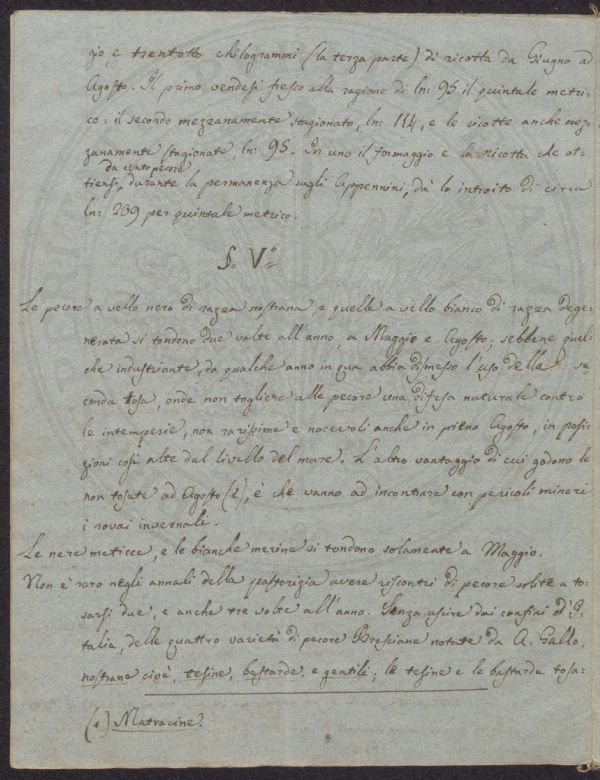 gio, e trentotto chilogrammi (la terza parte) di ricotta da Giugno ad
Agosto. Il primo vendesi fresco alla ragione di ln: 95 il quintale metri-
co: il secondo mezzanamente stagionato, ln: 114, e le ricotte anche mez-
zanamente stagionate, ln: 95. In uno il formaggio e la ricotta che ot-
da cento pecore
tiensi, durante la permanenza sugli Appennini, dà lo introito di circa
ln: 209 per quintale metrico.
§. V.°
Le pecore a vello nero di razza nostrana, e quelle a vello bianco di razza dege-
nerata si tondono due volte all'anno, a Maggio e Agosto; sebbene qual-
che industriante, da qualche anno in qua abbia dimesso l'uso della se-
conda tosa, onde non togliere alle pecore una difesa naturale contro
le intemperie, non rarissime e nocevoli anche in pieno Agosto, in posi-
zioni così alte dal livello del mare. L'altro vantaggio di cui godono le
non tosate ad Agosto (1), è che vanno ad incontrare con pericoli minori
i rovai invernali.
Le nere meticce, e le bianche merine si tondono solamente a Maggio.
Non è raro negli annali della pastorizia avere riscontri di pecore solite a to-
sarsi due, e anche tre volte all'anno. Senza uscire dai confini d'I-
talia, delle quattro varietà di pecore Bresciane notate da A. Gallo,
nostrane cioè, tesine, bastarde, e gentili; le tesine e le bastarde tosa-
(1) Matracine.